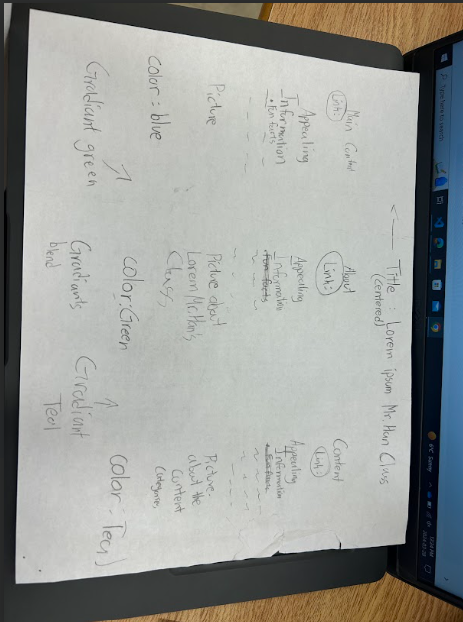 Title: Lorem ipsum Mr Han Class
(centered)
Main Content
Link:
Appealing
Information
• Fun facts
Picture
color: blue
Gradiant green
About
Link:
Appealing
Picture about
Lorem Mr. Han's
Class,
color: Green
Gradiants
blend
Content
Link:
Appealing
Information
Picture
about the
Content
Categories
color: Teal
Gradiant
Teal
Type here to search
Sunny